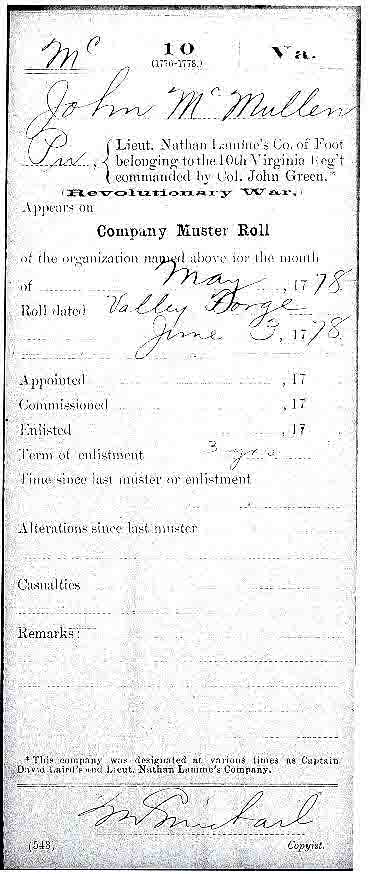 Mc 10 Va.
(1776-1778.)
John McMullen
Pvt., Lieut. Nathan Lamme's Co. of Foot
belonging to the 10th Virginia Reg't
commanded by Col. John Green.*
(Revolutionary War.)
Appears on
Company Muster Roll
of the organization named above for the month
of May, 1778
Roll dated Valley Forge
June 3, 1778.
Appointed , 17
Commissioned , 17
Enlisted , 17
Term of enlistment 3 yrs
Time since last muster or enlistment
Alterations since last muster
Casualties
Remarks:
*This company was designated at various times as Captain
David Laird's and Lieut. Nathan Lamme's Company.
(543) Copyist.